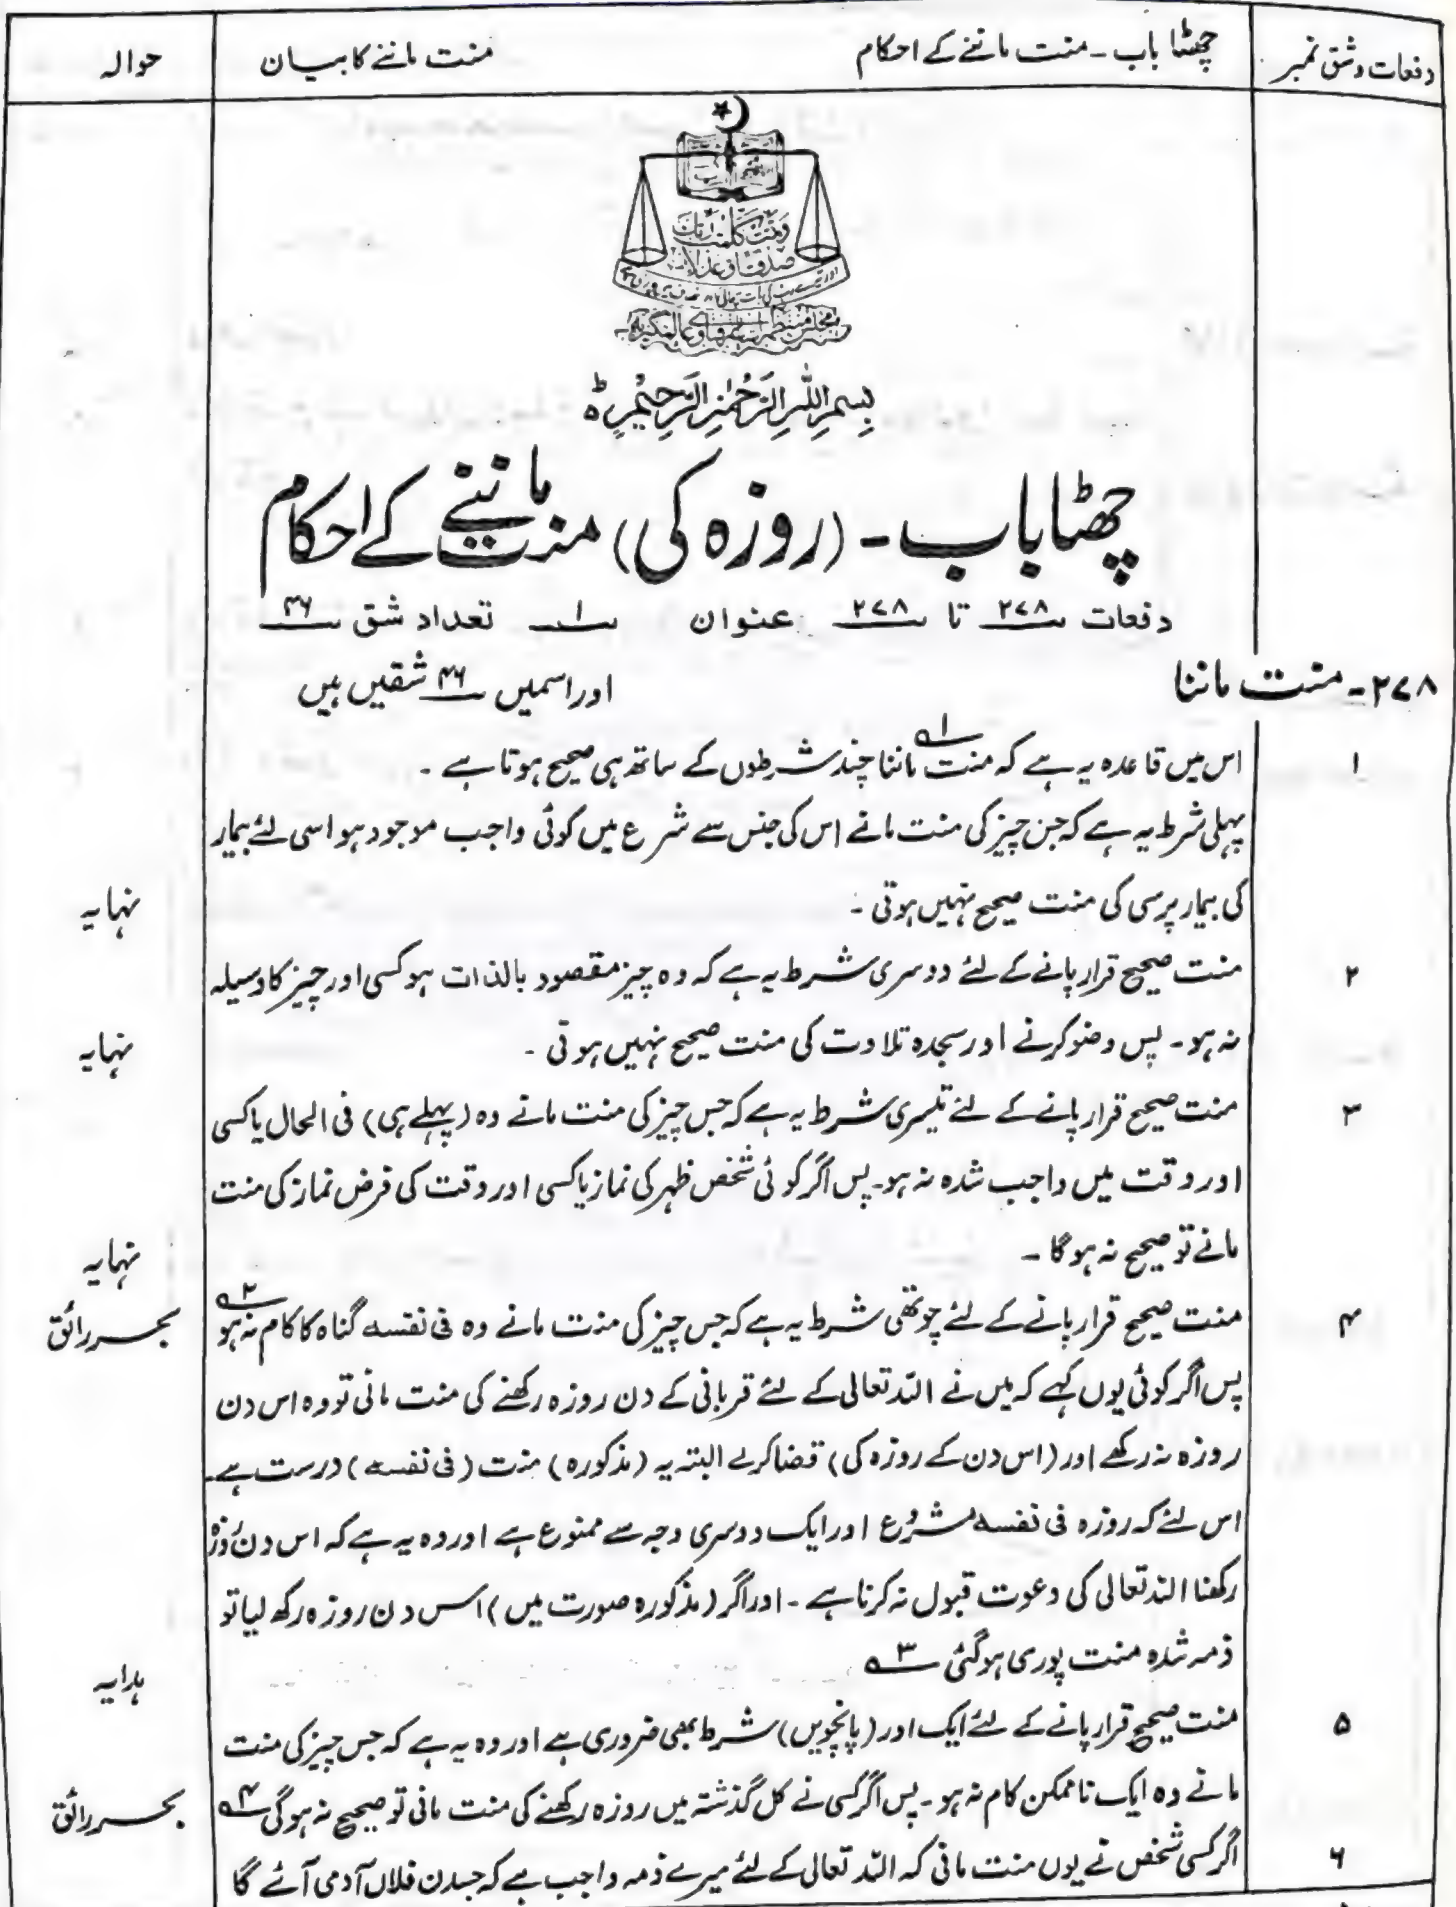 دفعات وشق نمبر
چھٹا باب۔ منت ماننے کے احکام
منت ماننے کا بیان
حوالہ
وَتَمَّتْ كَلِمَتُ رَبِّكَ
صِدْقًا وَعَدْلًا
بِسْمِ اللهِ الرَّحْمٰنِ الرَّحِيْمِ ہ
چھٹا باب۔ (روزہ کی) منت ماننے کے احکام
دفعات ۲۷۸ تا ۲۷۸ عنوان ۱ تعداد شق ۴۶
۲۷۸۔ منت ماننا
اور اسمیں ۴۶ شقیں ہیں
۱ اس میں قاعدہ یہ ہے کہ منت ماننا چند شرطوں کے ساتھ ہی صحیح ہوتا ہے ۔ ۱ھ
پہلی شرط یہ ہے کہ جس چیز کی منت مانے اس کی جنس سے شرع میں کوئی واجب موجود ہو اسی لئے بیمار
کی بیمار پرسی کی منت صحیح نہیں ہوتی ۔ نہایہ
۲ منت صحیح قرار پانے کے لئے دوسری شرط یہ ہے کہ وہ چیز مقصود بالذات ہو کسی اور چیز کا وسیلہ
نہ ہو۔ پس وضو کرنے اور سجدہ تلاوت کی منت صحیح نہیں ہوتی ۔ نہایہ
۳ منت صحیح قرار پانے کے لئے تیسری شرط یہ ہے کہ جس چیز کی منت مانے وہ (پہلے ہی) فی الحال یا کسی
اور وقت میں واجب شدہ نہ ہو۔ پس اگر کوئی شخص ظہر کی نماز یا کسی اور وقت کی فرض نماز کی منت
مانے تو صحیح نہ ہوگا ۔ نہایہ
۴ منت صحیح قرار پانے کے لئے چوتھی شرط یہ ہے کہ جس چیز کی منت مانے وہ فی نفسہ گناہ کا کام نہ ہو ۲ھ بحر رائق
پس اگر کوئی یوں کہے کہ میں نے اللہ تعالی کے لئے قربانی کے دن روزہ رکھنے کی منت مانی تو وہ اس دن
روزہ نہ رکھے اور (اس دن کے روزہ کی) قضا کرے البتہ یہ (مذکورہ) منت (فی نفسہ) درست ہے۔
اس لئے کہ روزہ فی نفسہ مشروع اور ایک دوسری وجہ سے ممنوع ہے اور وہ یہ ہے کہ اس دن روزہ
رکھنا اللہ تعالی کی دعوت قبول نہ کرنا ہے ۔ اور اگر (مذکورہ صورت میں) اس دن روزہ رکھ لیا تو
ذمہ شدہ منت پوری ہوگئی ۳ھ ہدایہ
۵ منت صحیح قرار پانے کے لئے ایک اور (پانچویں) شرط بھی ضروری ہے اور وہ یہ ہے کہ جس چیز کی منت
مانے وہ ایک ناممکن کام نہ ہو ۔ پس اگر کسی نے کل گذشتہ میں روزہ رکھنے کی منت مانی تو صحیح نہ ہوگی ۴ھ بحر رائق
۶ اگر کسی شخص نے یوں منت مانی کہ اللہ تعالی کے لئے میرے ذمہ واجب ہے کہ جسدن فلاں آدمی آئے گا